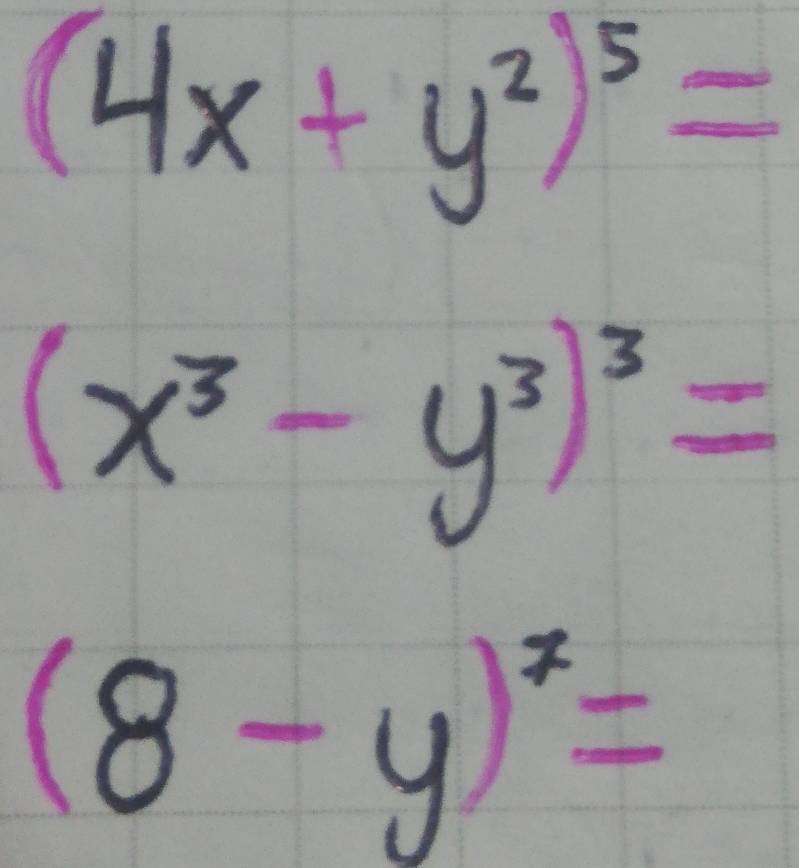 (4x + y²)⁵ =
(x³ - y³)³ =
(8 - y)⁷ =